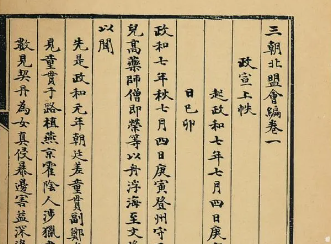 三朝北盟會編卷一
政宣上帙
起政和七年七月四日庚寅
日已卯
政和七年秋七月四日庚寅登州守
兒高藥師僧即榮等以舟浮海至文
以聞
先是政和元年朝廷差童貫副鄭
見童貫于路植燕京霍陰人涉獵書
數見契丹為女真侵暴邊害益深